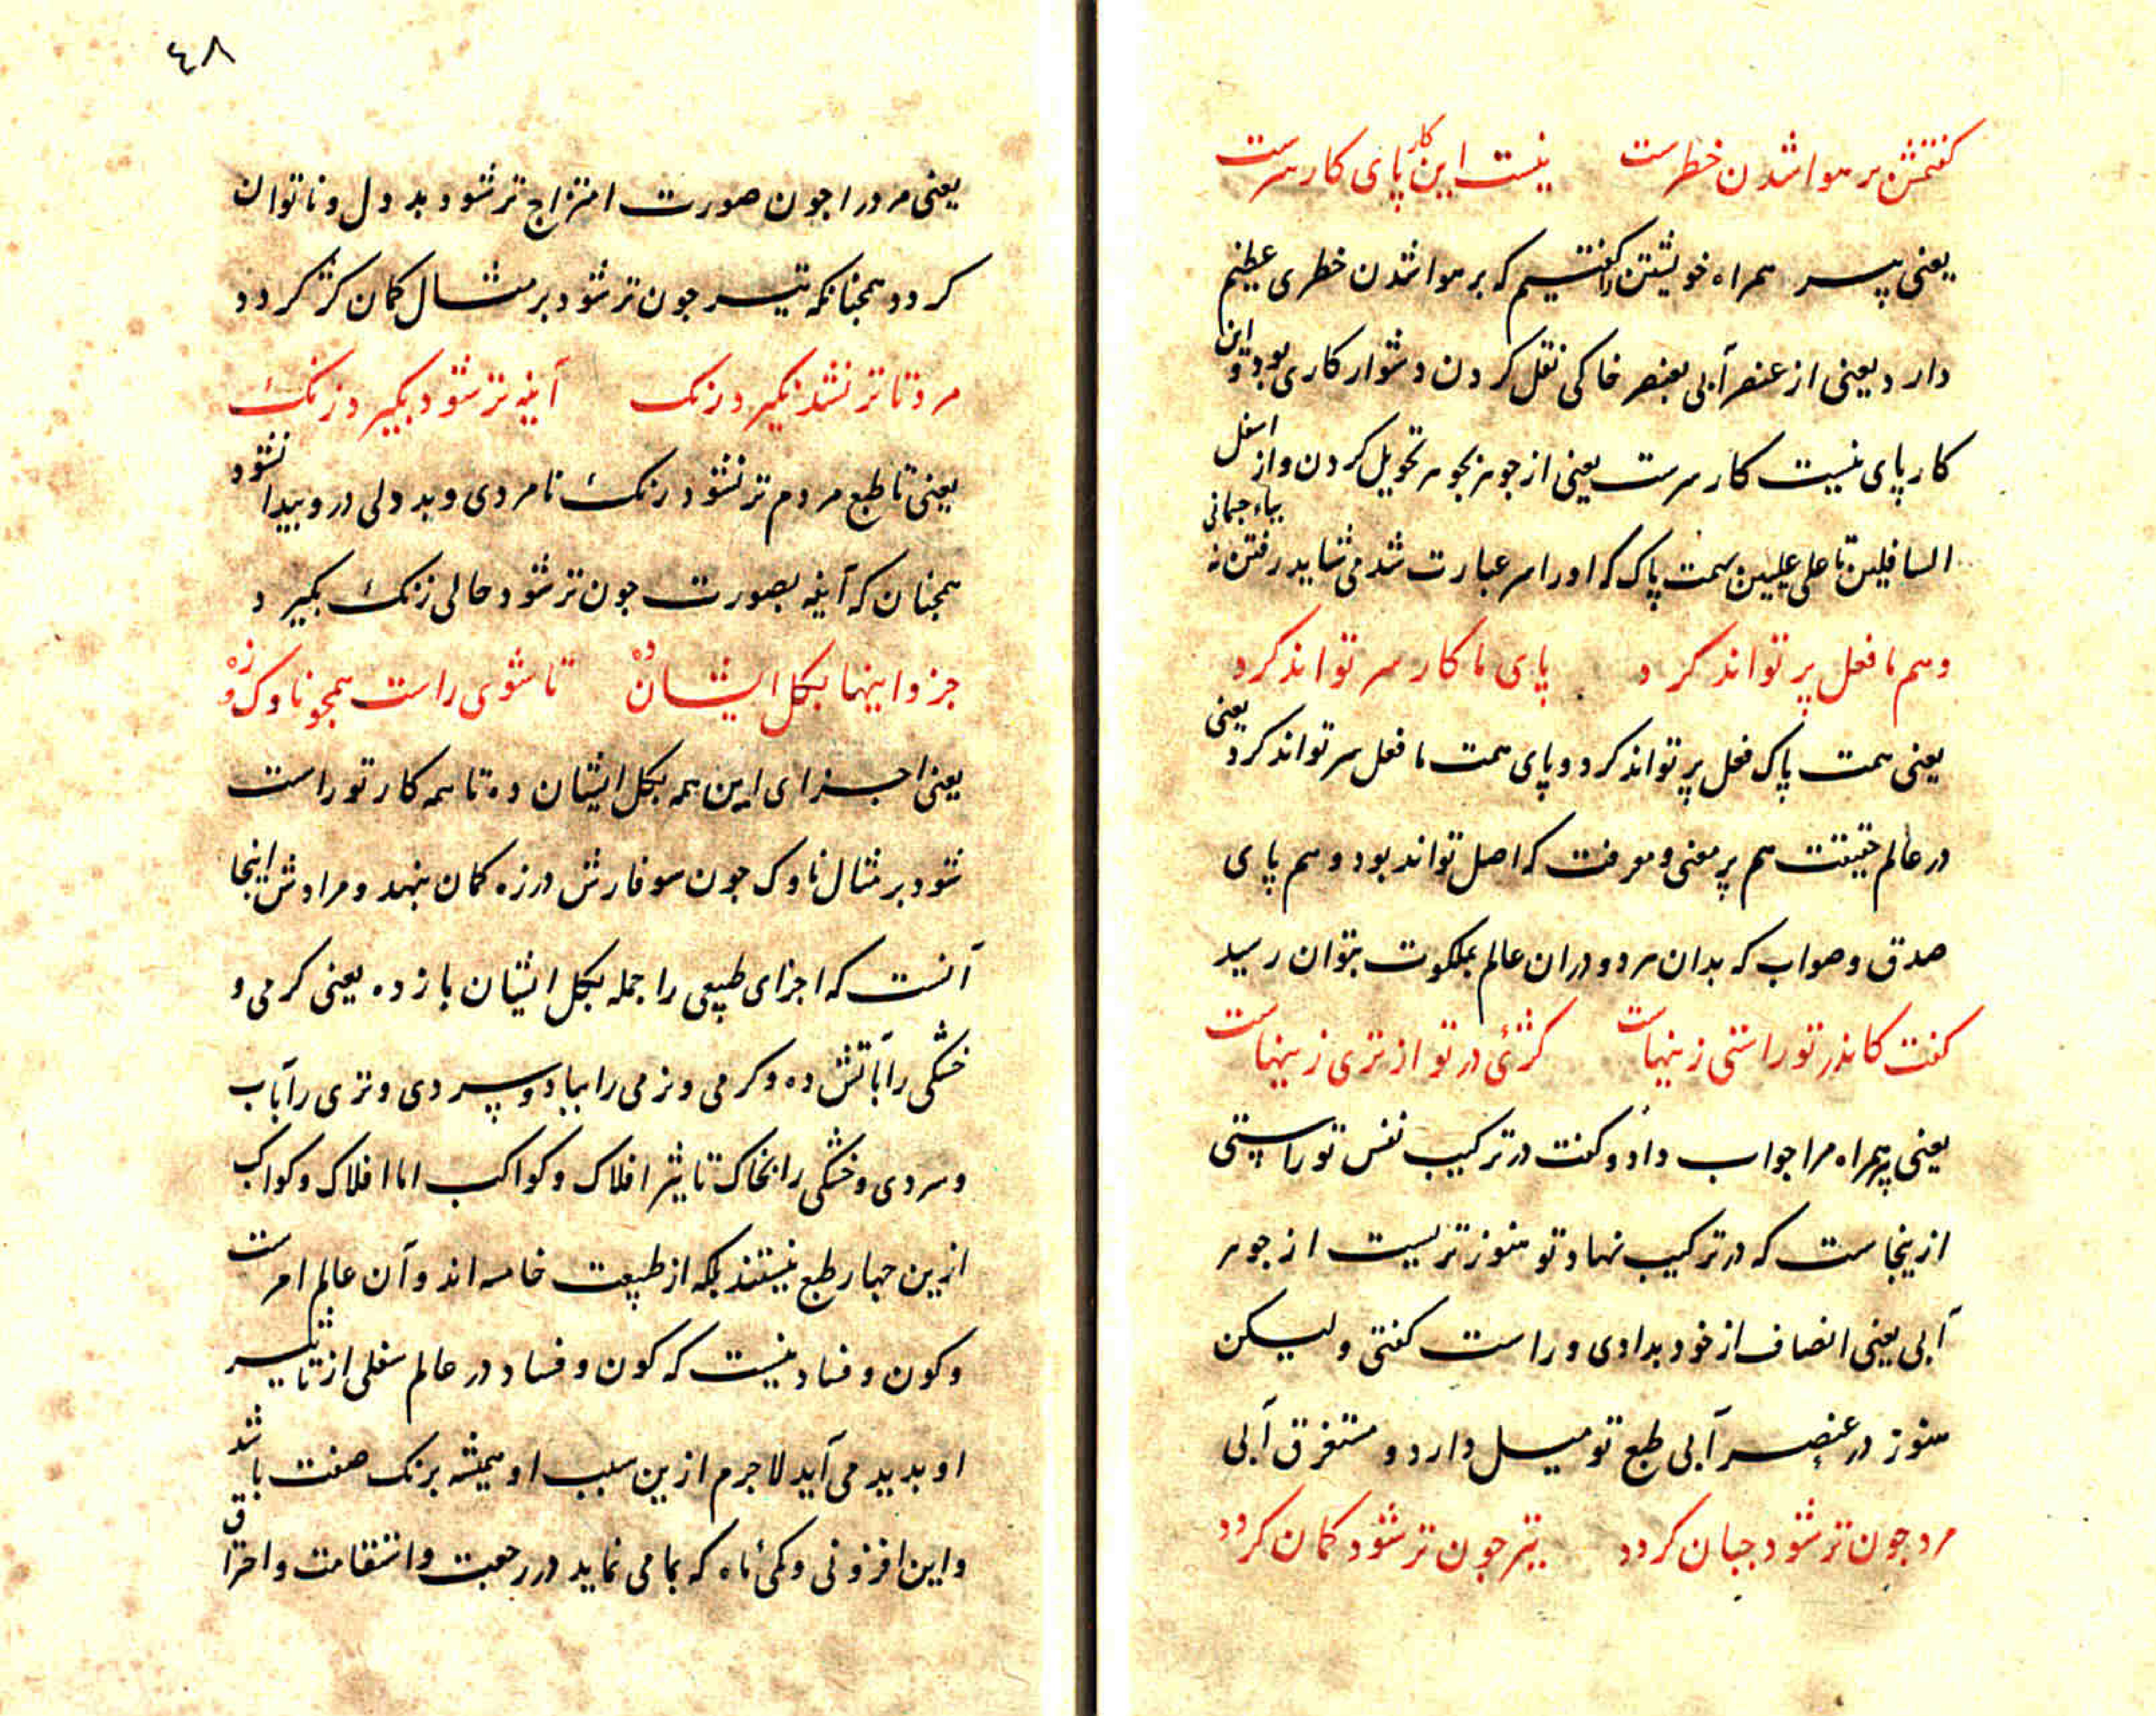 کفتمش بر هوا شدن خطرست نیست این کار پای کار سرست
یعنی پیر همراه خویشتن را کفتیم که بر هوا شدن خطری عظیم
دارد یعنی از عنصر آبی بعنصر خاکی نقل کردن دشوار کاری بود و این
کار پای نیست کار سرست یعنی از جوهر بجوهر تحویل کردن و از اسفل
السافلین تا علی علیین بهمت پاک که اورا سر عبارت شد می شاید رفتن نه بپاء جسمانی
وهم ما فعل پر تواند کرد پای ما کار سر تواند کرد
یعنی همت پاک فعل پر تواند کرد و پای همت ما فعل سر تواند کرد یعنی
در عالم حقیقت هم پر معنی و معرفت که اصل تواند بود و هم پای
صدق و صواب که بدان سر دو دران عالم بملکوت بتوان رسید
کفت کاندر تو راستی زینهاست کژئی در تو از تری زینهاست
یعنی پیر همراه مرا جواب داد و کفت در ترکیب نفس تو راستی
ازینجاست که در ترکیب نهاد تو هنوز تریست از جوهر
آبی یعنی انصاف از خود بدادی و راست کفتی ولیکن
هنوز در عنصر آبی طبع تو میل دارد و مستغرق آبی
مرد جون تر شود جبان کردد تیر جون تر شود کمان کردد
٤٨
یعنی مرد را جون صورت امتزاج تر شود بد دل و ناتوان
کردد همجنانکه تیر جون تر شود بر مثال کمان کژ کردد
مرد تا تر نشد نکیرد رنک آینه تر شود بکیرد زنک
یعنی تا طبع مردم تر نشود رنک نامردی و بد دلی درو پیدا نشود
همجنان که آینه بصورت جون تر شود حالی زنک بکیرد
جزو اینها بکل ایشان ده تا شوی راست همجو ناوک و زه
یعنی اجزای این همه بکل ایشان ده تا همه کار تو راست
شود بر مثال ناوک جون سوفارش در زه کمان بنهد و مرادش اینجا
آنست که اجزای طبیعی را جمله بکل ایشان باز ده یعنی کرمی و
خشکی را بآتش ده و کرمی و نرمی را بباد و سردی و تری را بآب
و سردی و خشکی را بخاک تاثیر افلاک و کواکب اما افلاک و کواکب
ازین جهار طبع نیستند بلکه از طبیعت خامسه اند و آن عالم امرست
و کون و فساد نیست که کون و فساد در عالم سفلی از تاثیر
او بدید می آید لاجرم ازین سبب او همیشه برنک صفت باشد
و این افزونی و کمی ماه که بما می نماید در رجعت و استقامت و احتراق